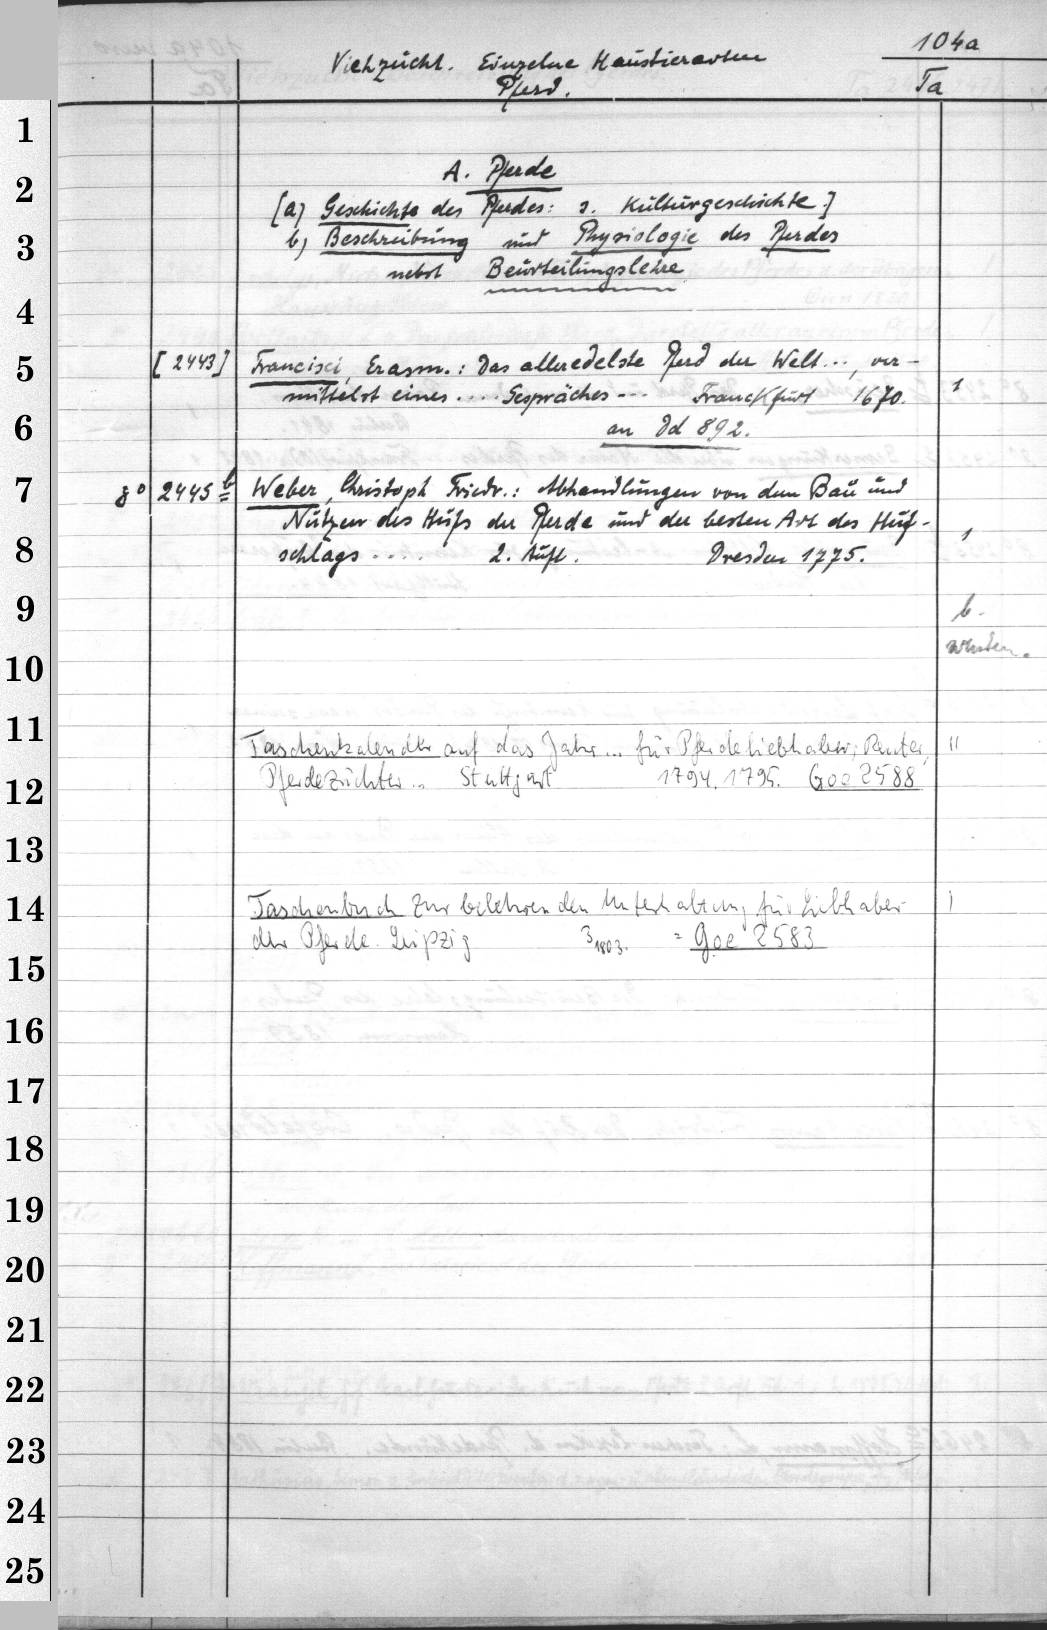 104a
Viehzucht. Einzelne Haustierarten
Pferd.
Ta
1
A. Pferde
2
[a) Geschichte des Pferdes: s. Kulturgeschichte.]
3
b) Beschreibung und Physiologie des Pferdes
nebst Beurteilungslehre
4
5
[2443] Francisci, Erasm.: Das alleredelste Pferd der Welt..., ver- 1
mittelst eines .... Gespräches --- Franckfurt 1670.
6
an Dd 892.
7
8° 2445 b Weber, Christoph Friedr.: Abhandlungen von dem Bau und
Nutzen des Hufs der Pferde und der besten Art des Huf- 1
8
schlags ..... 2. Aufl. Dresden 1775.
9
b.
10
11
Taschenkalender auf das Jahr ... für Pferdeliebhaber, Reuter, 11
12
Pferdezüchter .. Stuttgart 1794. 1795. Goe 2588
13
14
Taschenbuch zur belehrenden Unterhaltung für Liebhaber 1
der Pferde. Leipzig 3 1803. = Goe 2583
15
16
17
18
19
20
21
22
23
24
25